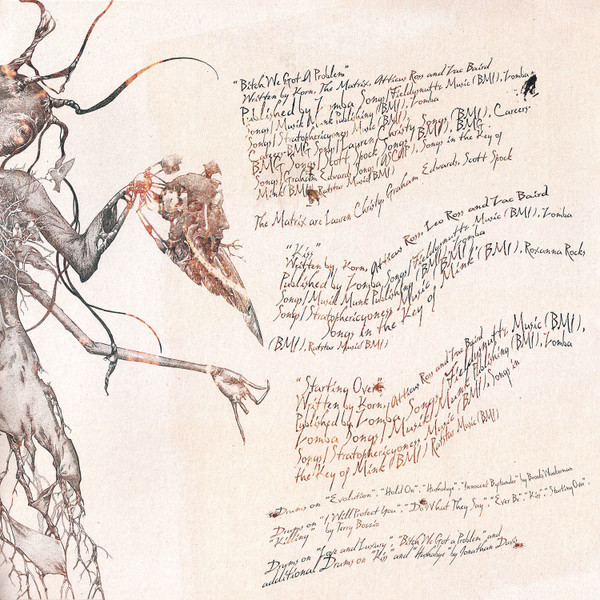 "Bitch We Got A Problem"
Written by Korn, The Matrix, Atticus Ross and Zac Baird
Published by Zomba Songs/Fieldysnuttz Music (BMI), Zomba
Songs/Musik Munk Publishing (BMI), Zomba
Songs/Stratosphericyoness Music (BMI), Careers-
BMG Songs/Lauren Christy Songs (BMI), Careers-
BMG Songs/Scott Spock Songs (BMI), BMG
Songs/Graham Edwards Songs (ASCAP), Songs in the Key of
Mink (BMI), Ratstar Music (BMI)
The Matrix are Lauren Christy, Graham Edwards, Scott Spock
"Kiss"
Written by Korn, Atticus Ross, Leo Ross and Zac Baird
Published by Zomba Songs/Fieldysnuttz Music (BMI), Zomba
Songs/Musik Munk Publishing (BMI), Zomba
Songs/Stratosphericyoness Music (BMI), Roxanna Rocks
Songs in the Key of Mink
(BMI), Ratstar Music (BMI)
"Starting Over"
Written by Korn, Atticus Ross and Zac Baird
Published by Zomba Songs/Fieldysnuttz Music (BMI),
Zomba Songs/Musik Munk Publishing (BMI), Zomba
Songs/Stratosphericyoness Music (BMI), Songs in
the Key of Mink (BMI) Ratstar Music (BMI)
Drums on "Evolution", "Hold On", "Hushabye", "Innocent Bystander" by Brooks Wackerman
Drums on "I Will Protect You", "Do What They Say", "Ever Be", "Kiss", "Starting Over",
"Killing" by Terry Bozzio
Drums on "Love and Luxury", "Bitch We Got a Problem" and
additional Drums on "Kiss" and "Hushabye" by Jonathan Davis